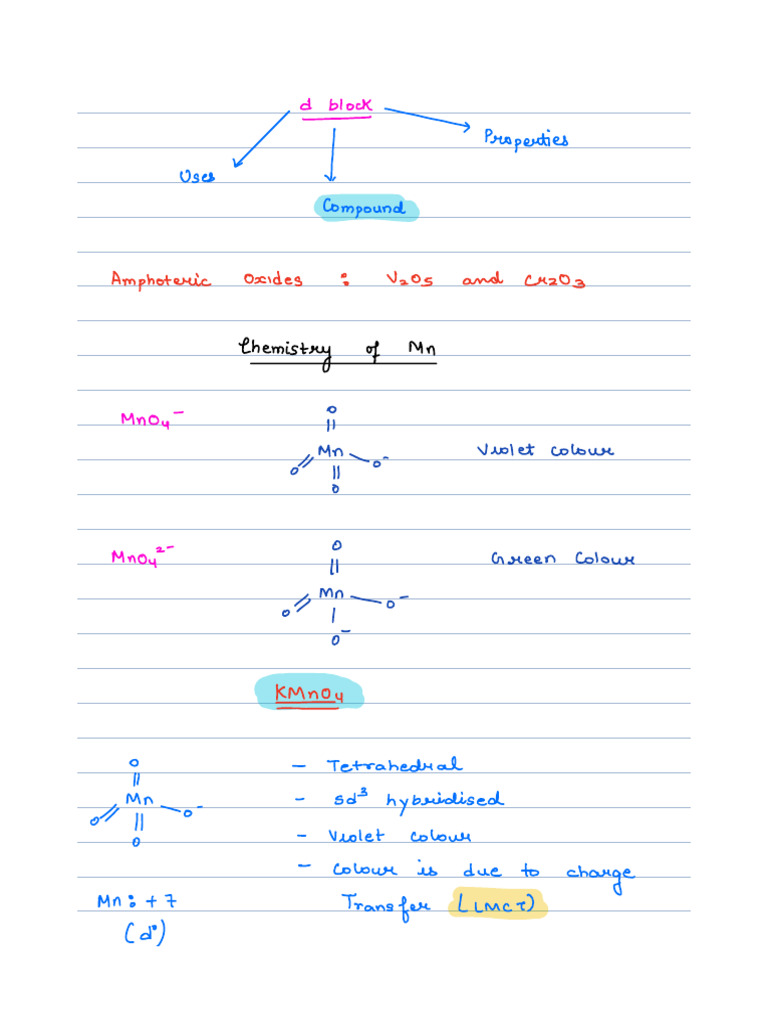 d block
Properties
Uses
Compound
Amphoteric Oxides : V₂O₅ and Cr₂O₃
Chemistry of Mn
MnO₄⁻
O
Mn
O
O⁻
O
Violet colour
MnO₄²⁻
O
Mn
O
O⁻
O⁻
Green Colour
KMnO₄
O
Mn
O
O⁻
O
Mn: +7
(d⁰)
– Tetrahedral
– sd³ hybridised
– Violet colour
– Colour is due to charge
Transfer (LMCT)